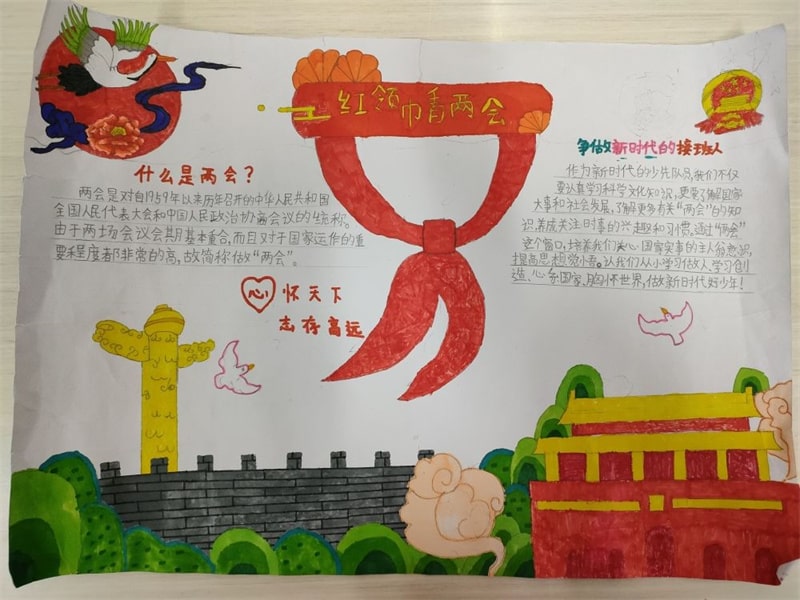 红领巾看两会
什么是两会？
两会是对自1959年以来历年召开的中华人民共和国
全国人民代表大会和中国人民政治协商会议的统称。
由于两场会议会期基本重合，而且对于国家运作的重
要程度都非常的高，故简称做“两会”。
心怀天下
志存高远
争做新时代的接班人
作为新时代的少先队员，我们不仅
要认真学习科学文化知识，更要了解国家
大事和社会发展，了解更多有关“两会”的知
识养成关注时事的兴趣和习惯，通过“两会”
这个窗口，培养我们关心国家实事的主人翁意识，
提高思想觉悟。让我们从小学习做人、学习创
造、心系国家、胸怀世界，做新时代好少年！